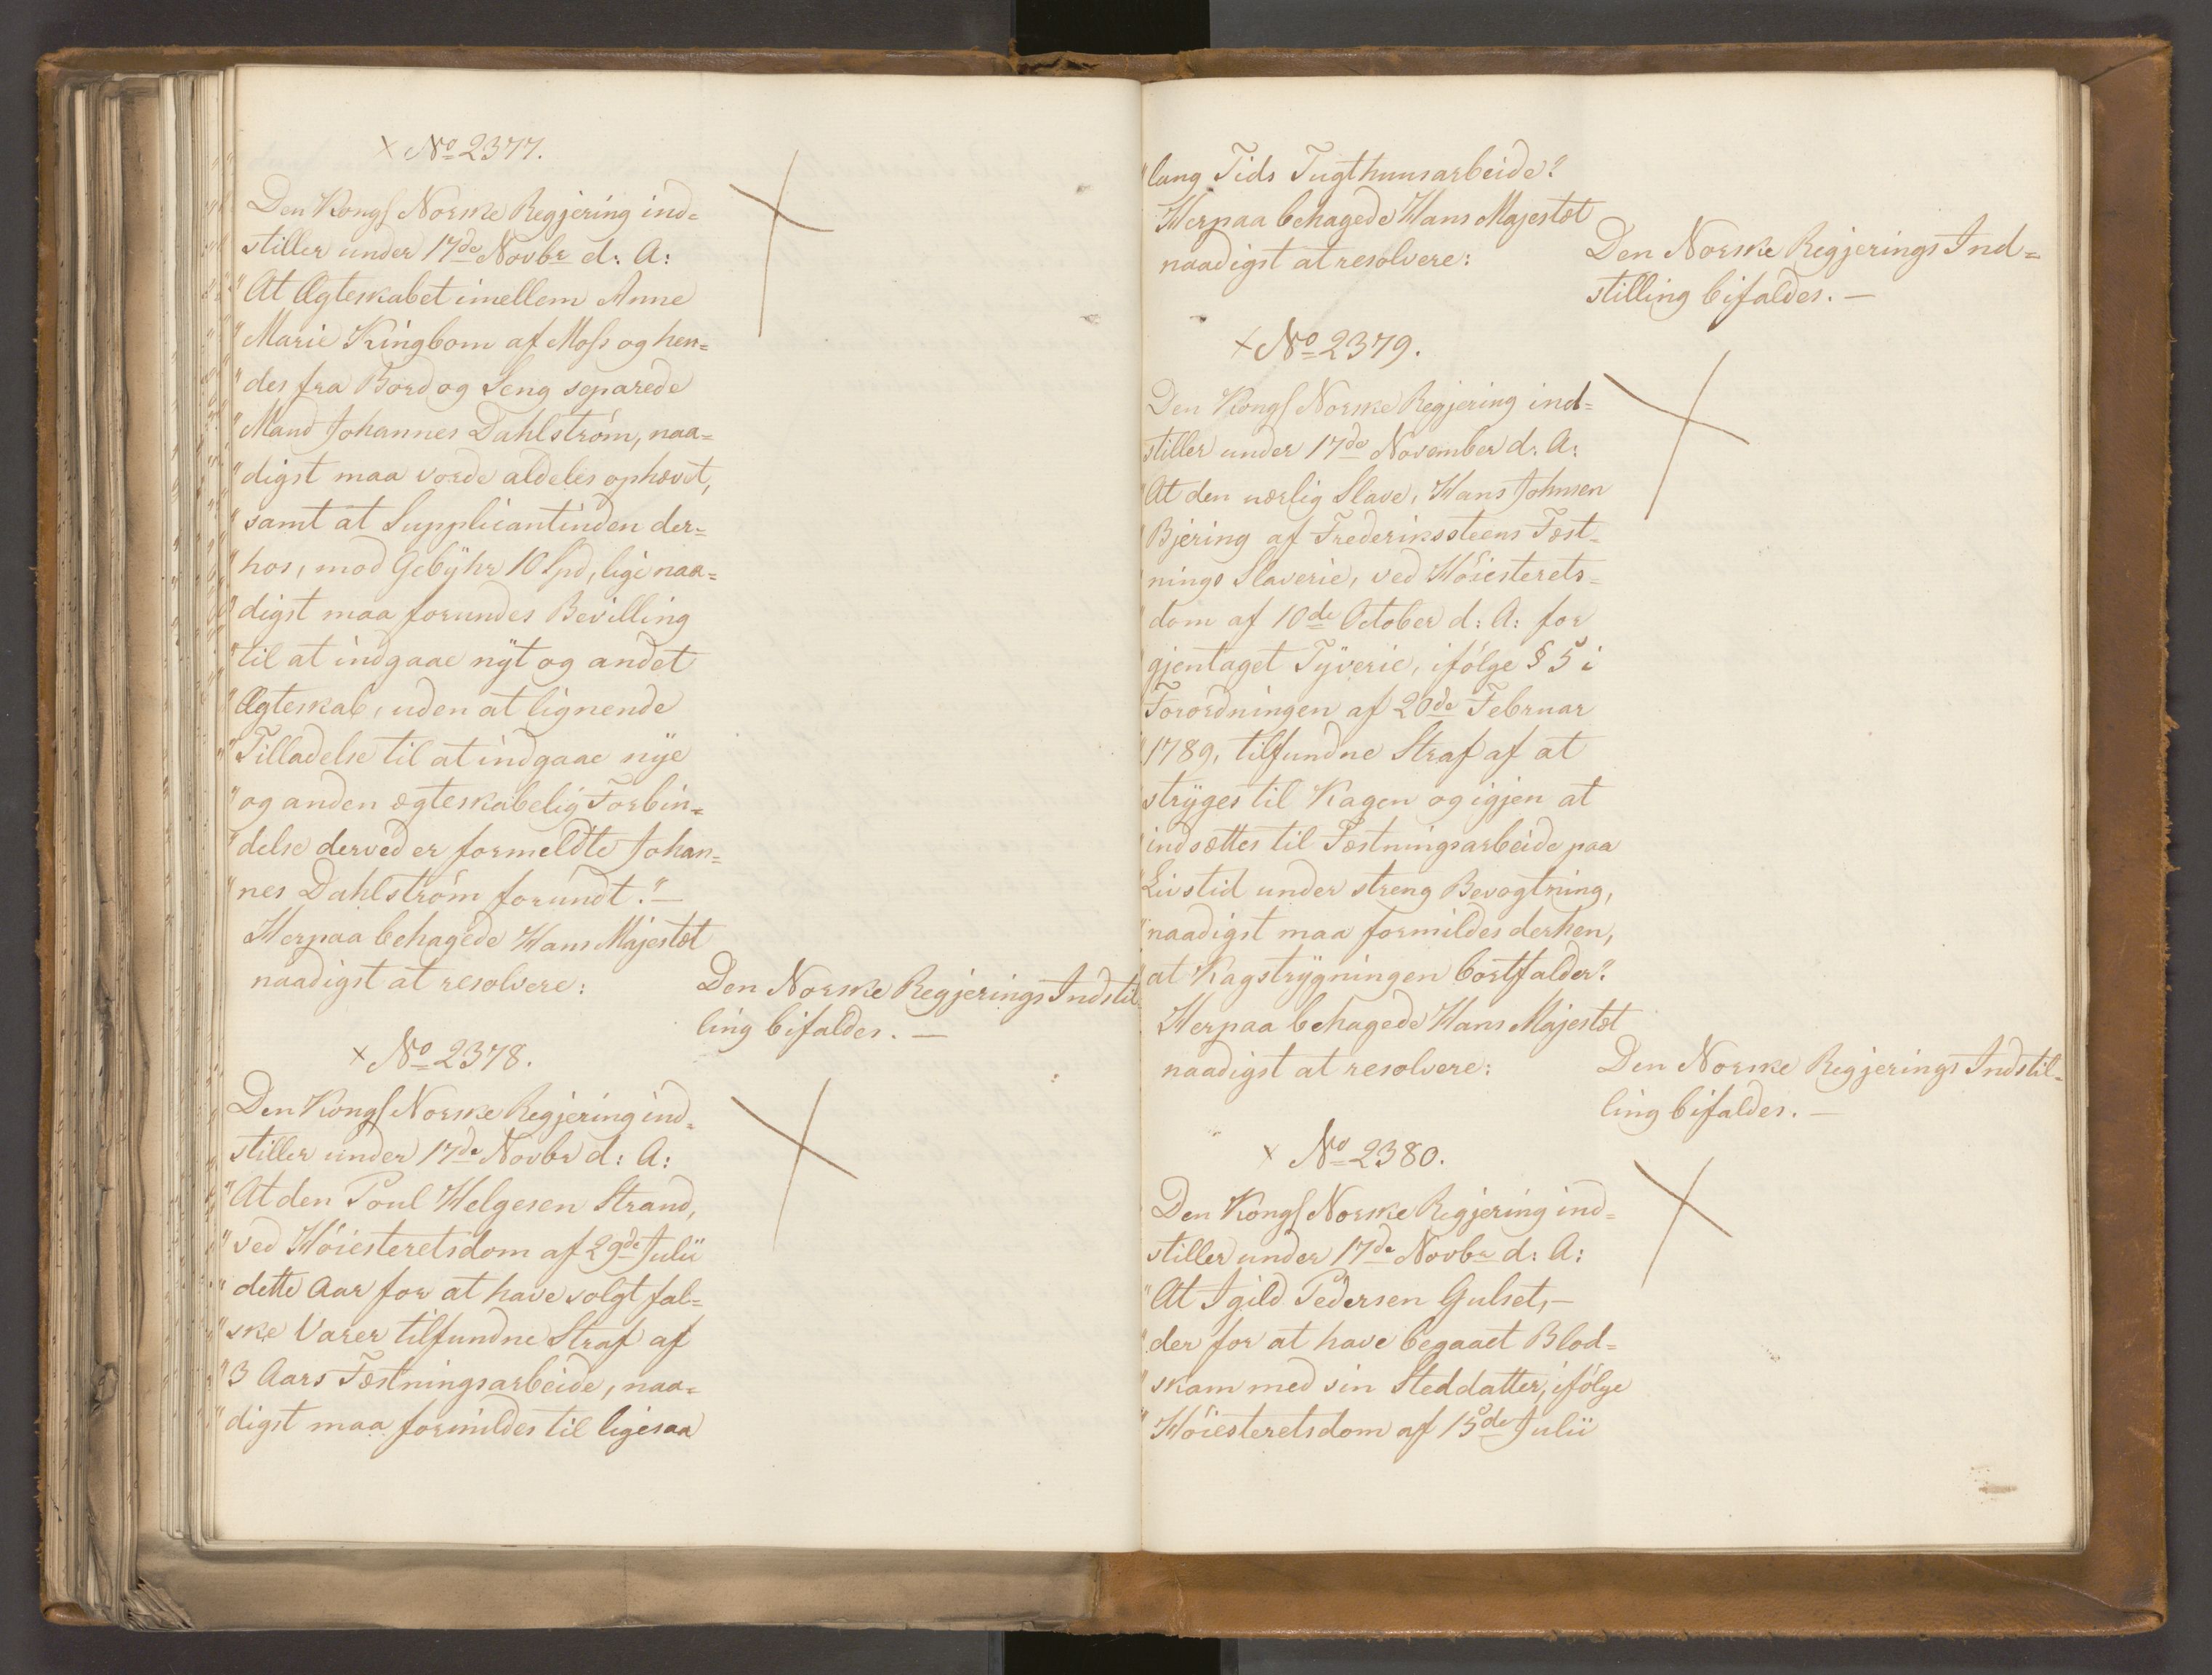 × No 2377.
Den Kongl Norske Regjering ind=
stiller under 17de Novbr d: A:
"At Ægteskabet imellem Anne
"Marie Kingbom af Moss og hen=
"des fra Bord og Seng separede
"Mand Johannes Dahlström, naa=
"digst maa vorde aldeles ophævet,
"samt at Supplicantinden der=
"hos, mod Gebÿhr 10 Spd, lige naa=
"digst maa forundes Bevilling
"til at indgaae nÿt og andet
"Ægteskab, uden at lignende
"Tilladelse til at indgaae nÿe
"og anden ægteskabelig Forbin=
"delse derved er formeldte Johan=
"nes Dahlström forundt." —
Herpaa behagede Hans Majestæt
naadigst at resolvere:
Den Norske Regjerings Indstil=
ling bifaldes. —
× No 2378.
Den Kongl Norske Regjering ind=
stiller under 17de Novbr d: A:
"At den Poul Helgesen Strand,
"ved Höiesteretsdom af 29de Julii
"dette Aar for at have solgt fal=
"ske Varer tilfundne Straf af
"3 Aars Fæstningsarbeide, naa=
"digst maa formildes til ligesaa
"lang Tids Tugthuusarbeide."
Herpaa behagede Hans Majestæt
naadigst at resolvere:
Den Norske Regjerings Ind=
stilling bifaldes. —
× No 2379.
Den Kongl Norske Regjering ind=
stiller under 17de November d: A:
"At den uærlig Slave, Hans Johnsen
"Bjering af Frederikssteens Fæst=
"nings Slaverie, ved Höiesterets=
"dom af 10de October d: A: for
"gjentaget Tÿverie, ifölge § 5 i
"Forordningen af 20de Februar
"1789, tilfundne Straf af at
"strÿges til Kagen og igjen at
"indsættes til Fæstningsarbeide paa
"Livstid under streng Bevogtning,
"naadigst maa formildes derhen,
"at Kagstrÿgningen bortfalder."
Herpaa behagede Hans Majestæt
naadigst at resolvere:
Den Norske Regjerings Indstil=
ling bifaldes. —
× No 2380.
Den Kongl Norske Regjering ind=
stiller under 17de Novbr d: A:
"At Igild Pedersen Gulset, —
"der for at have begaaet Blod=
"skam med sin Steddatter, ifölge
"Höiesteretsdom af 15de Julii